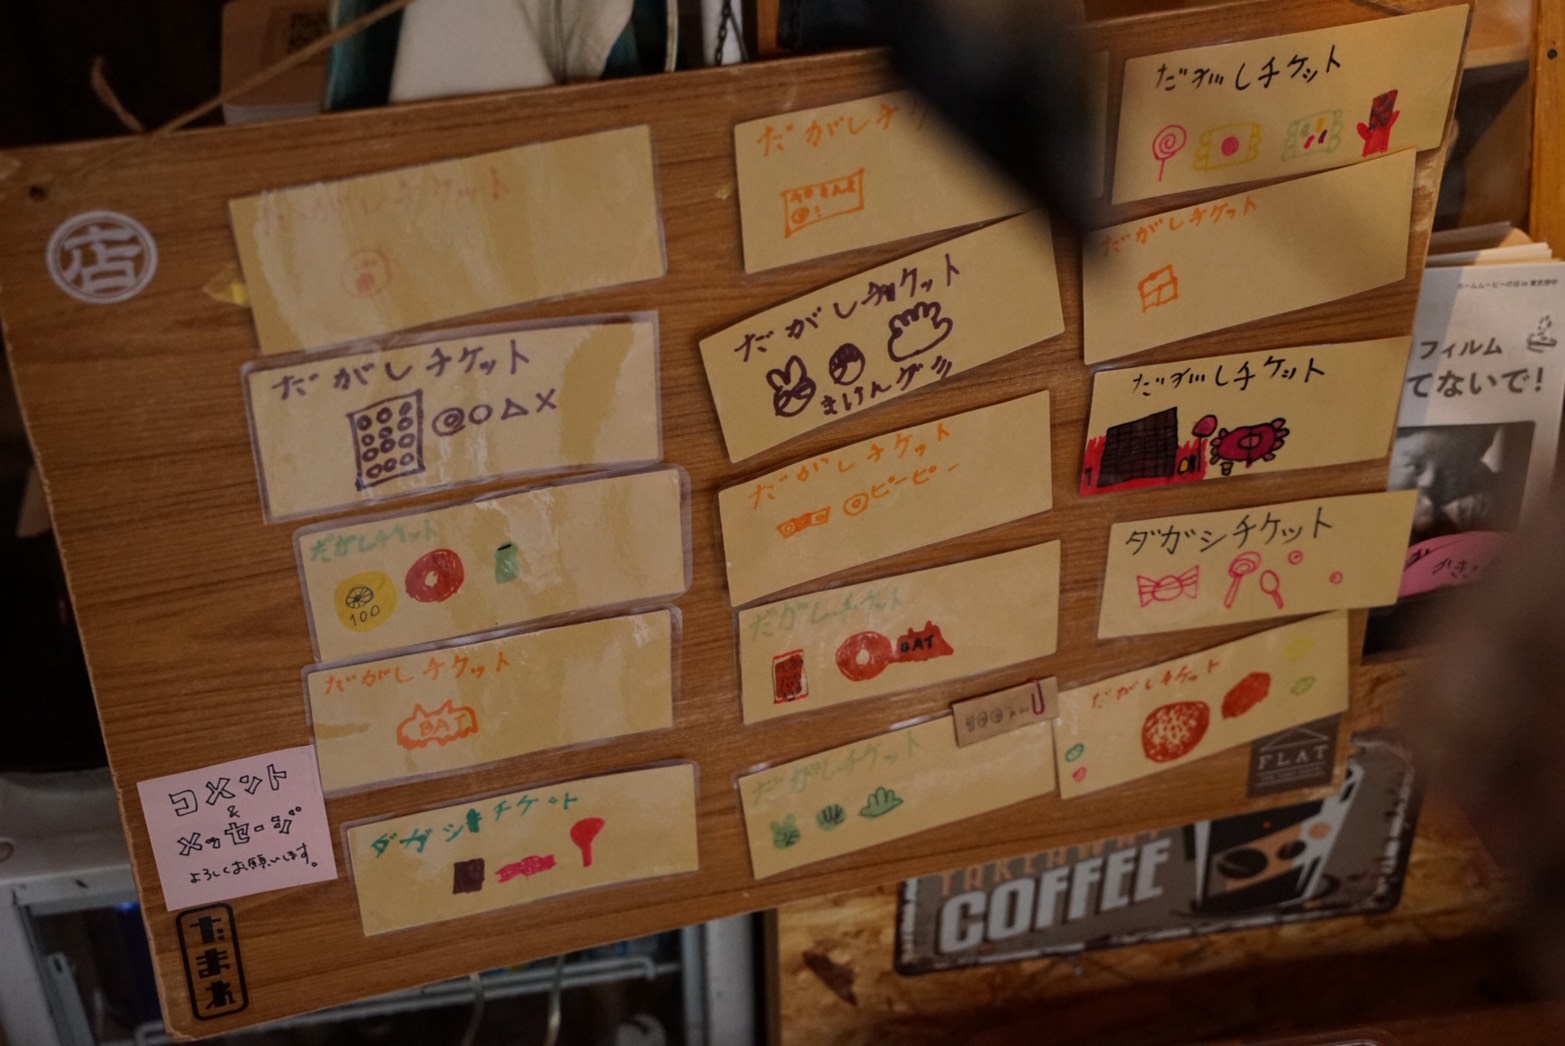 店
だがしチケット
だがしチケット
だがしチケット
100
だがしチケット
BAT
ダガシチケット
コメント
&
メッセージ
よろしくお願いします。
たまれ
だがしチ
だがしチケット
まけんグミ
だがしチケット
ピーピー
だがしチケット
BAT
だがしチケット
だがしチケット
だがしチケット
だがしチケット
ダガシチケット
だがしチケット
FLAT
フィルム
てないで!
COFFEE